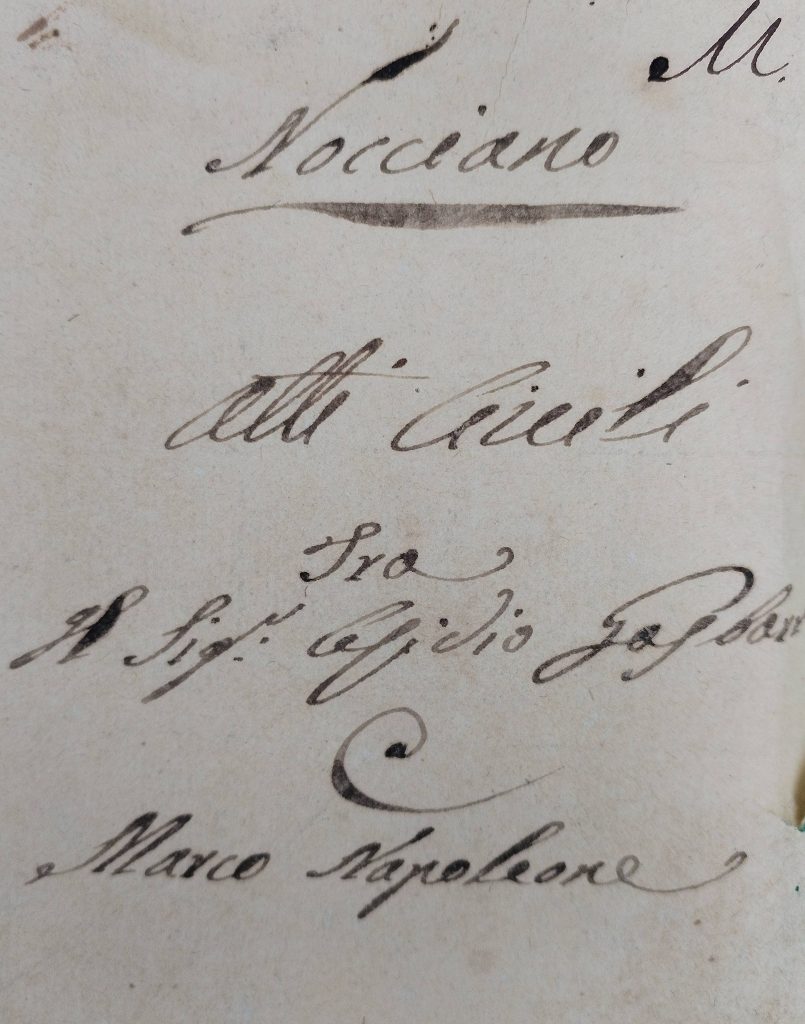 M.
Nocciano
Atti Civili
Tra
Il Sig.r Cesidio
E
Marco Napoleone